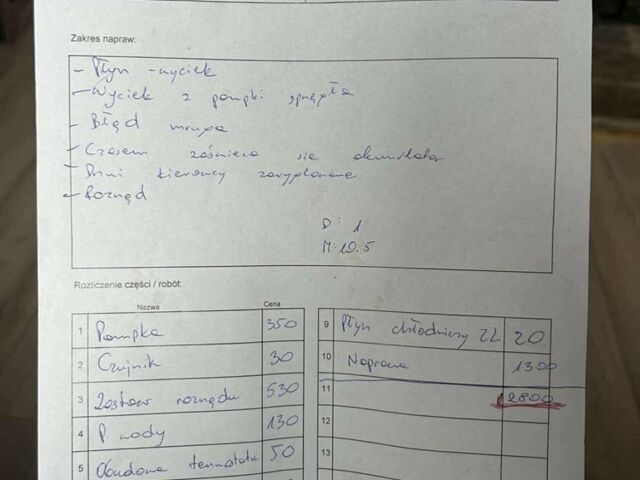 Zakres napraw:
- Płyn - wyciek
- Wyciek z pompki sprzęgła
- Błąd mrupa
- Czasem zaświeca się akumulator
- Drzwi kierowcy zaryglowane
- Rozrząd
D: 1
M: 10.5
Rozliczenie części / robót:
Nazwa Cena
1 Pompka 350
2 Czujnik 30
3 Zestaw rozrządu 530
4 P. wody 130
5 Obudowa termostatu 50
9 Płyn chłodniczy 2L 20
10 Naprawa 1300
11 2800
12
13